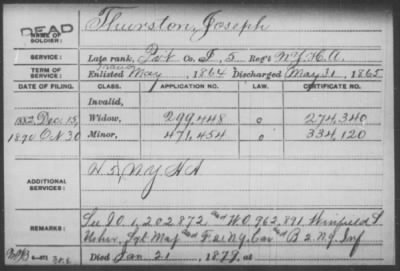 DEAD
NAME OF SOLDIER: Thurston, Joseph
SERVICE: Late rank, Pvt Co. I, 5 Reg't N.Y.H.A.
TERM OF SERVICE: Enlisted May 1864 Discharged May 31, 1865
DATE OF FILING. CLASS. APPLICATION NO. LAW. CERTIFICATE NO.
Invalid,
1882, Dec. 15, Widow, 299,448 o 274,340
1890 O N 30 Minor, 471,454 o 334,120
ADDITIONAL SERVICES: H. 5, N Y H A
REMARKS: See I O. 1,202,872 and W.O. 962,891, Winfield S
Usher, Sgt Maj and F 21 N.Y. Cav and B 2 N.Y. Inf
Died Jan. 21, 1879, at